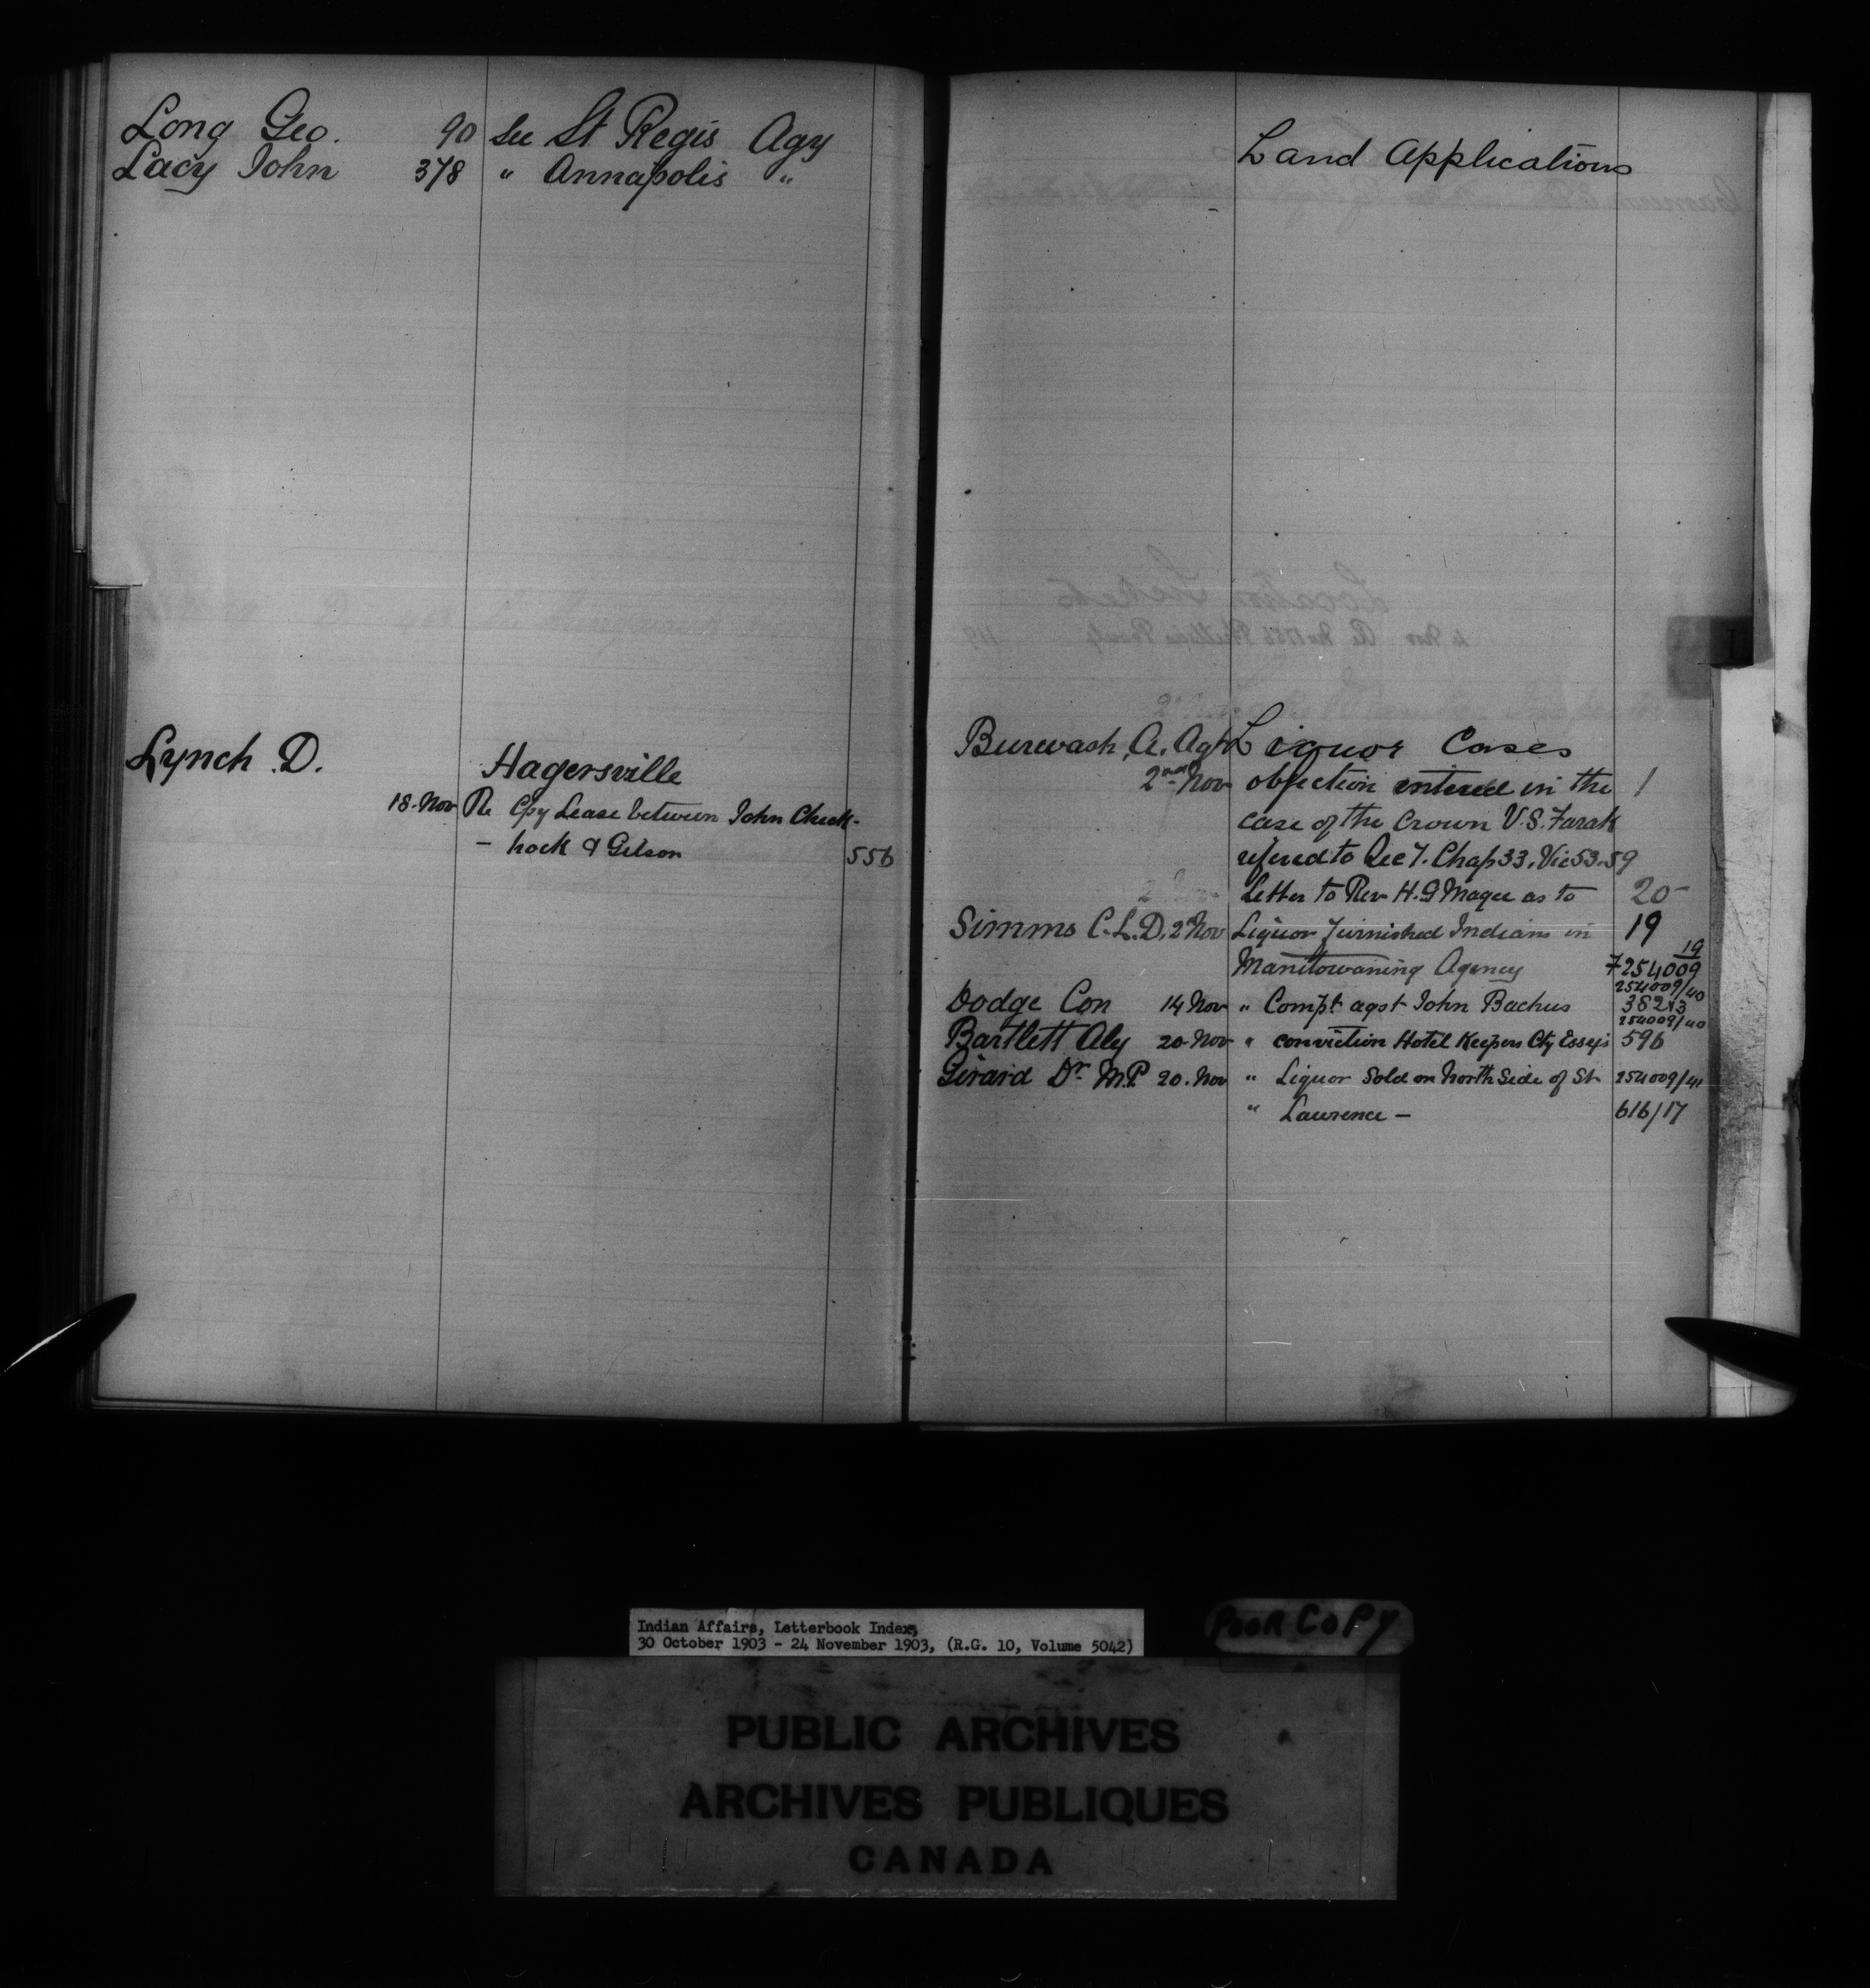 Long Geo. 90 See St Regis Agy
Lacy John 378 " Annapolis "
Lynch D. Hagersville
18. Nov Re Cpy Lease between John Check-
- hock & Gilson 556
Land Applications
Burwash, A. Agt Liquor Cases
2nd Nov objection entered in the 1
case of the Crown V.S. Farak
refered to Sec 7. Chap 33. Vic 53.59
Letter to Rev H. G Magee as to 20-
Simms C.L.D. 2nd Nov Liquor furnished Indians in 19
Manitowaning Agency 19
254009
254009/40
Dodge Con 14 Nov " Compt agst John Bachus 382
254009/40
Bartlett Aly 20. Nov " conviction Hotel Keepers Cty Essex 596
Girard Dr. M.P. 20. Nov " Liquor Sold on North Side of St 254009/41
" Lawrence - 616/17
Indian Affairs, Letterbook Index,
30 October 1903 - 24 November 1903, (R.G. 10, Volume 5042)
POOR COPY
PUBLIC ARCHIVES
ARCHIVES PUBLIQUES
CANADA